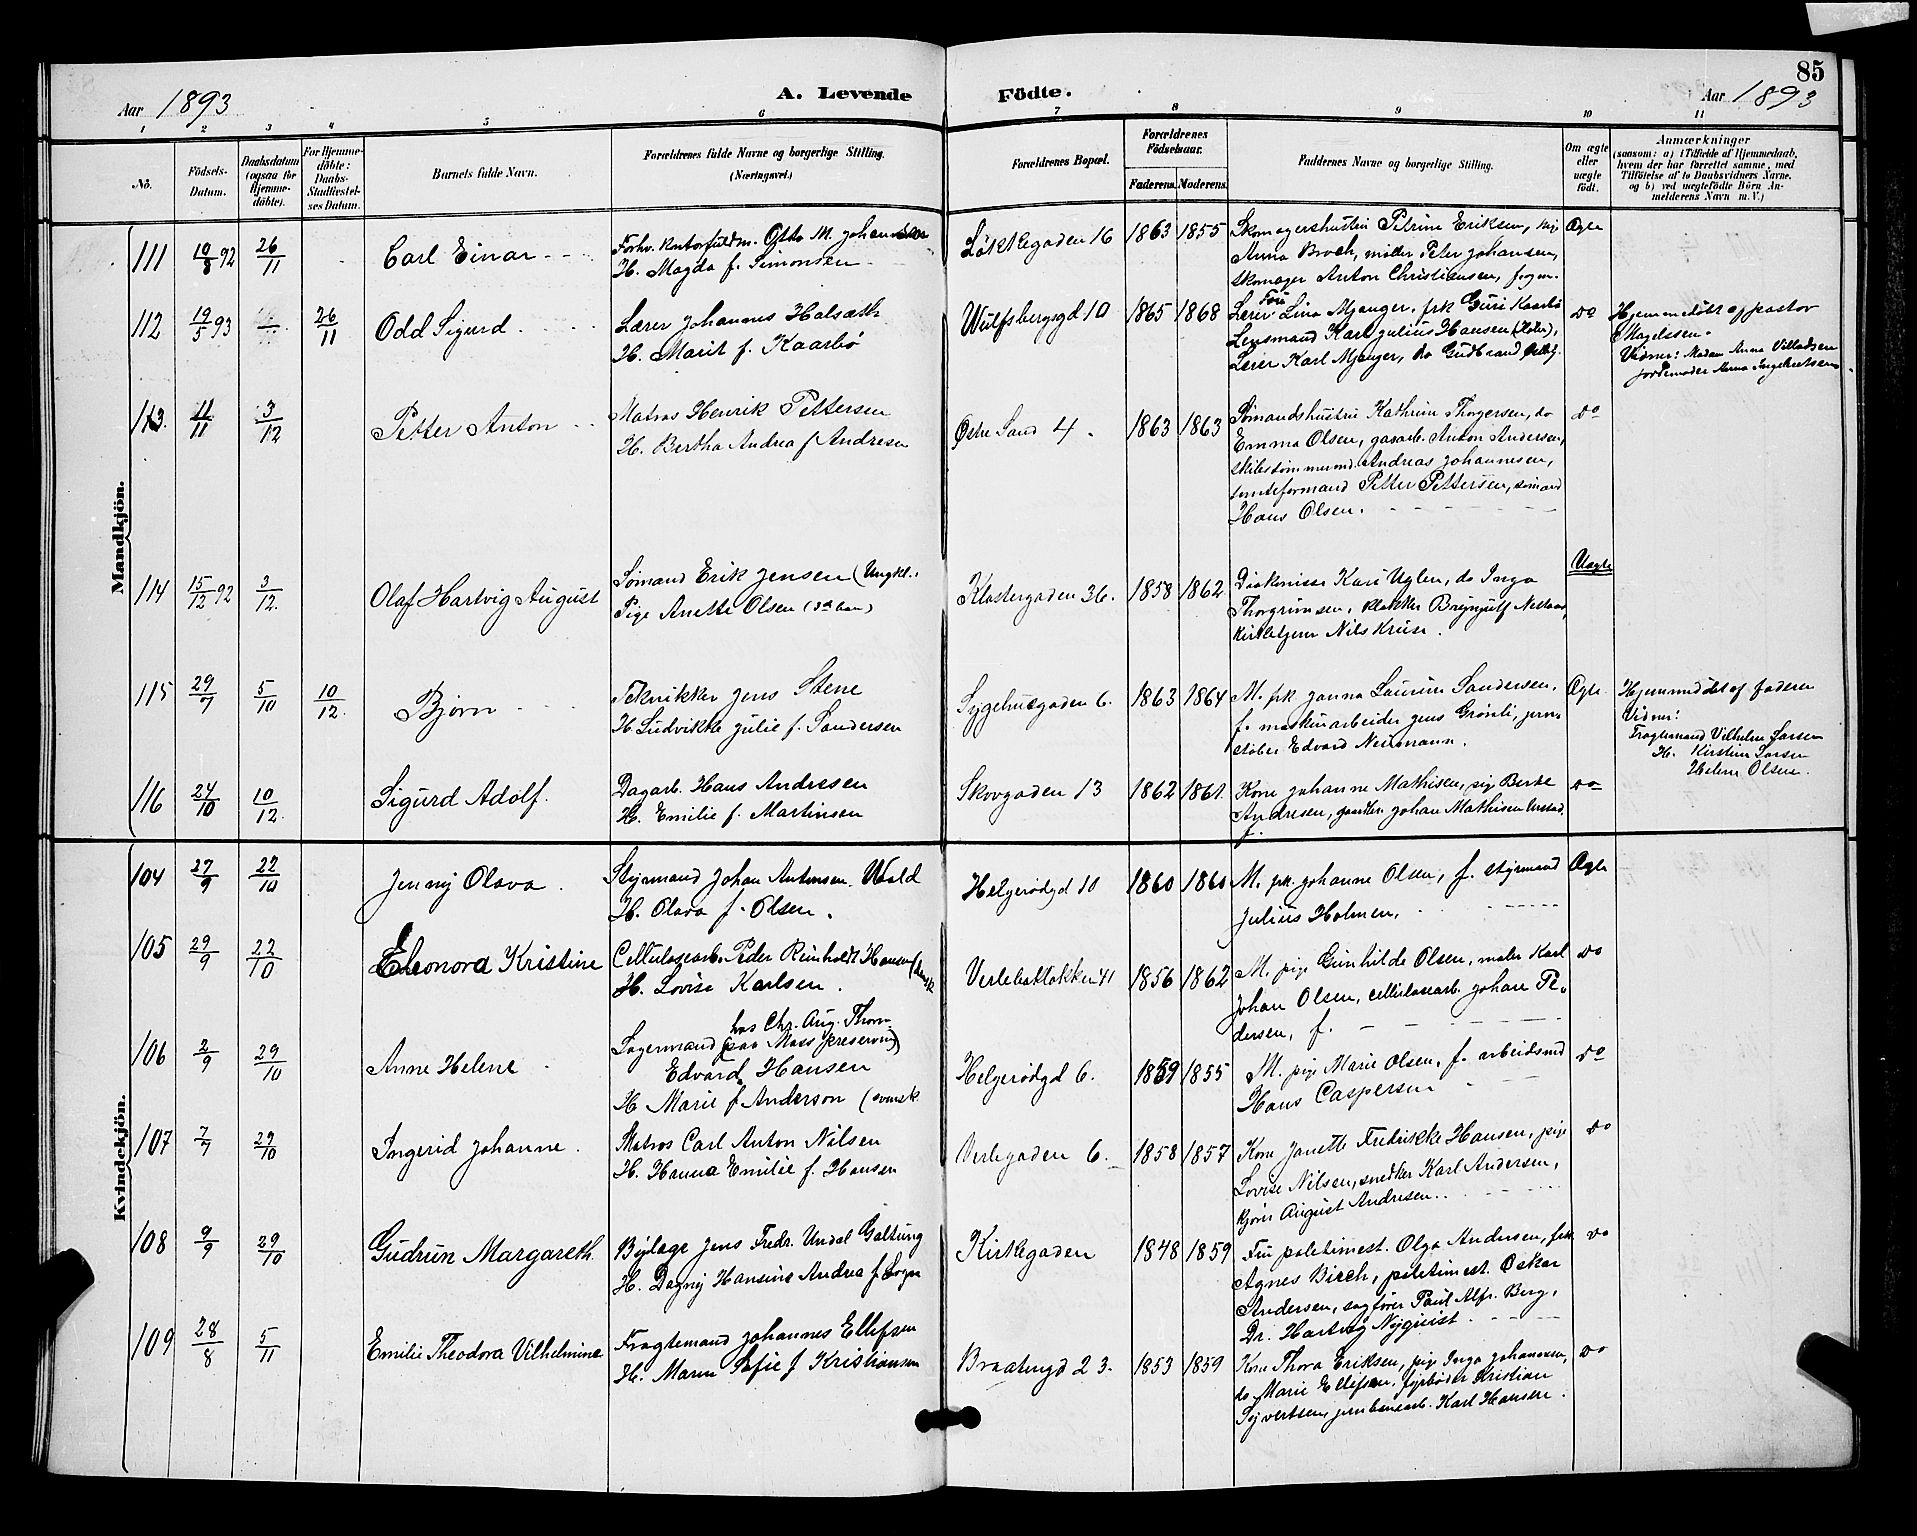 85
Aar 1893
A. Levende Födte.
Aar 1893
1 2 3 4 5 6 7 8 9 10 11
No.
Födsels-Datum.
Daabsdatum (ogsaa for Hjemme-döbte).
For Hjemme-döbte: Daabs-Stadfæstel-ses Datum.
Barnets fulde Navn.
Forældrenes fulde Navne og borgerlige Stilling. (Næringsvei.)
Forældrenes Bopæl.
Forældrenes Födselsaar.
Faderens. Moderens.
Faddernes Navne og borgerlige Stilling.
Om ægte eller uægte födt.
Anmærkninger
(saasom: a) i Tilfælde af Hjemmedaab, hvem der har forrettet samme, med Tilföielse af to Daabsvidners Navne. og b) ved uægtefödte Börn An-melderens Navn m. V.)
Mandkjön.
111 10/8 92 26/11 Carl Einar
Forhv. kntorfuldm. Otto M. Johansen
H. Magda f. Simonsen
Løkkegaden 16 1863 1855
Skomagershustru Petrine Eriksen, pig
Anna Broch, møller Peter Johansen,
skomager Anton Christiansen, fogm.
Ægte
112 19/5 93 26/11 Odd Sigurd
Lærer Johannes Halsæth
H. Marit f. Kaarbø
Wulfsbergsgd 10 1865 1868
Lærer Fru Lina Mjanger, frk Guri Kaarbø
Lensmand Karl Julius Hansen
Lærer Karl Mjanger, do Gudbrand
do
Hjemmedøbt af pastor
Magelssen.
Vidner: Madam Anna Villadsen
jordemoder Anna Ingebretsen
113. 11/11 3/12 Petter Anton
Matros Henrik Pettersen
H. Bertha Andrea f Andresen
Østre Sand 4. 1863 1863
Sømandshustru Kathrine Thorgersen, do
Emma Olsen, gasarb. Anton Andersen,
skibstømmermd. Andreas Johannesen,
tomteformand Petter Pettersen, sømand
Hans Olsen.
do
114 15/12 92 3/12. Olaf Hartvig August
Sømand Erik Jensen (Ungkl.:
Pige Anette Olsen
Klostergaden 36. 1858 1862
Diakonisse Kari Uglen, do Inga
Thorgrimsen, klokker Brynjulf
kirketjener Nils Kruse.
Uægte
115 29/7 5/10 10/12. Bjørn
Tekniker Jens Stene
H. Ludvikke Julie f. Sandersen
Sygehusgaden 6. 1863 1864
M. frk Janna Laurine Sandersen,
f. maskinarbeider Jens Grønli, jern-
støber Edvard Neumann.
Ægte
Hjemmedøbt af faderen
Vidner:
Fragtemand Vilhelm Larsen
H. Kirstine Larsen
Helene Olsen.
116 24/10 10/12. Sigurd Adolf.
Dagarb. Hans Andresen
H. Emilie f. Martinsen
Skovgaden 13 1862 1861.
Kone Johanne Mathisen, pig Berte
Andresen, gaardbr. Johan Mathisen
f.
do
Kvindekjön.
104 27/9 22/10 Jenny Olava.
Styrmand Johan Antonsen Wold
H. Olava f. Olsen.
Helgerødgd 10 1860 1860
M. frk. Johanne Olsen, f. styrmand
Julius Holmen.
Ægte
105 29/9 22/10 Eleonora Kristine
Cellulosearb. Peder Reinholdt Hansen
H. Lovise Karlsen.
Verlebakløkken 41 1856 1862
M. pige Gunhilde Olsen, maler Karl
Johan Olsen, cellulosearb. Johan Pe-
dersen, f.
do
106 2/9 29/10 Anne Helene
hos Chr. Aug. Thorn
Lagermand (paa Moss preserving)
Edvard Hansen
H. Marie f Anderson (svensk.
Helgerødgd 6. 1859 1855
M. pige Marie Olsen, f. arbeidsmd
Hans Caspersen
do
107 7/7 29/10 Ingerid Johanne.
Matros Carl Anton Nilsen
H. Hanna Emilie f. Hansen
Verlegaden 6. 1858 1857
Kone Janette Fredrikke Hansen, pige
Lovise Nilsen, snedker Karl Andersen,
kjører August Andresen.
do
108 9/9 29/10 Gudrun Margareth.
Bylæge Jens Fredr. Undal Galtung
H. Dagny Hansine Andrea f. Sogn
Kirkegaden 1848 1859
Fru politimest. Olga Andersen, frk
Agnes Birch, politimest. Oskar
Andersen, sagfører Paul Alfr. Berg,
Dr. Hartvig Nyquist.
do
109 28/8 5/11 Emilie Theodora Vilhelmine
Fragtemand Johannes Ellefsen
H. Maren Sofie f Kristiansen
Braatengd 23. 1853 1859
Kone Thora Eriksen, pige Inga Johannesen,
do Marie Ellefsen, fyrbøder Kristian
Syvertsen, jernbanearb. Karl Hansen.
do